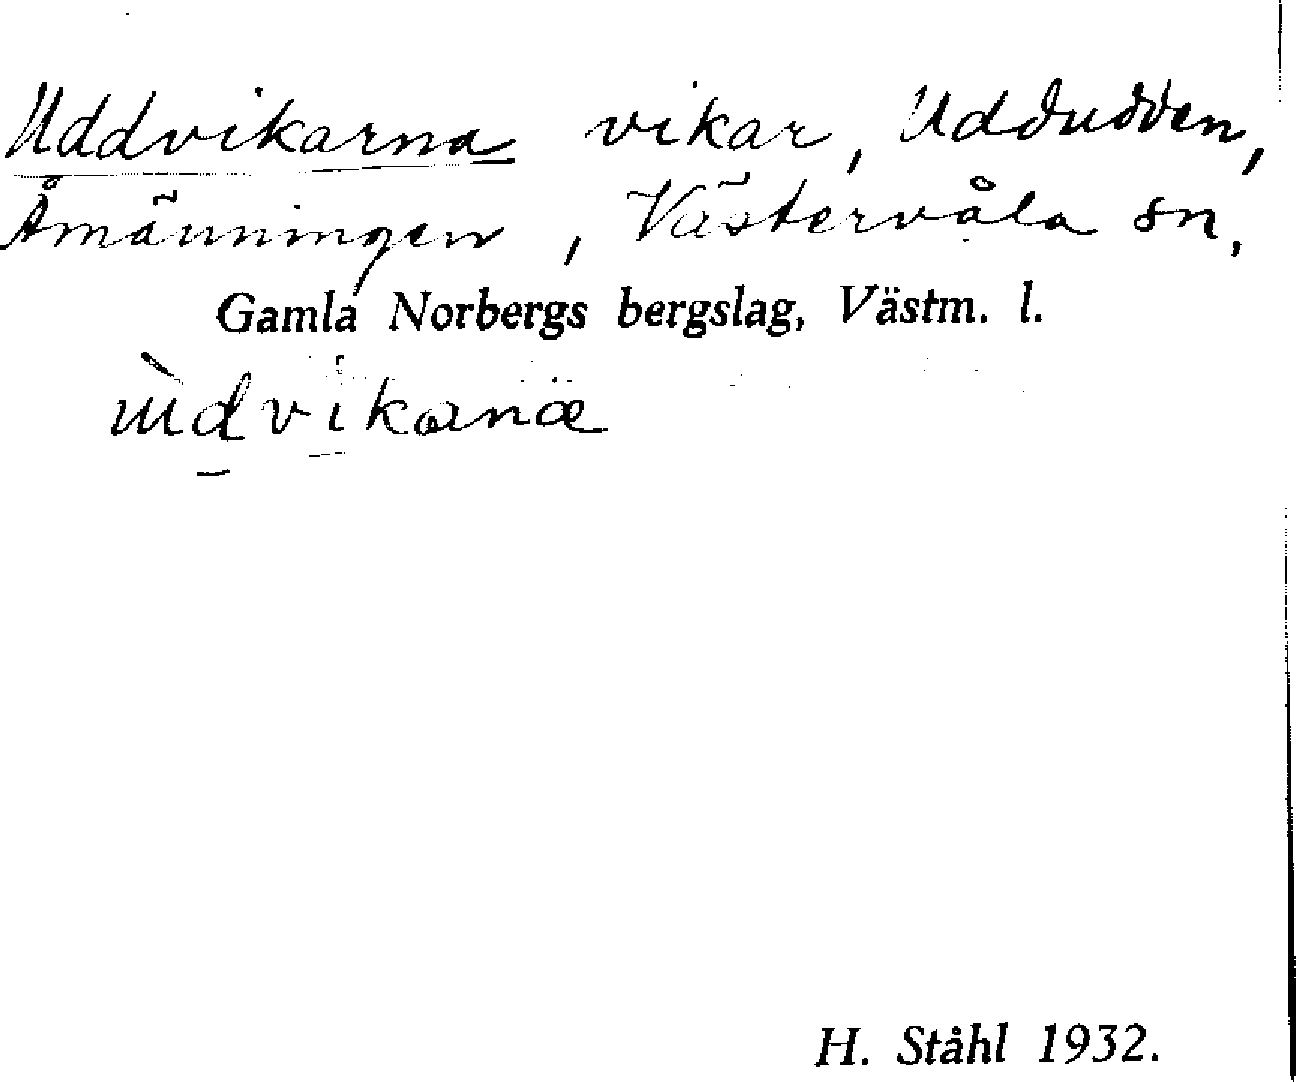 Uddvikarna vikar, Uddudden,
Åmänningen, Västervåla sn,
Gamla Norbergs bergslag, Västm. l.
H. Ståhl 1932.